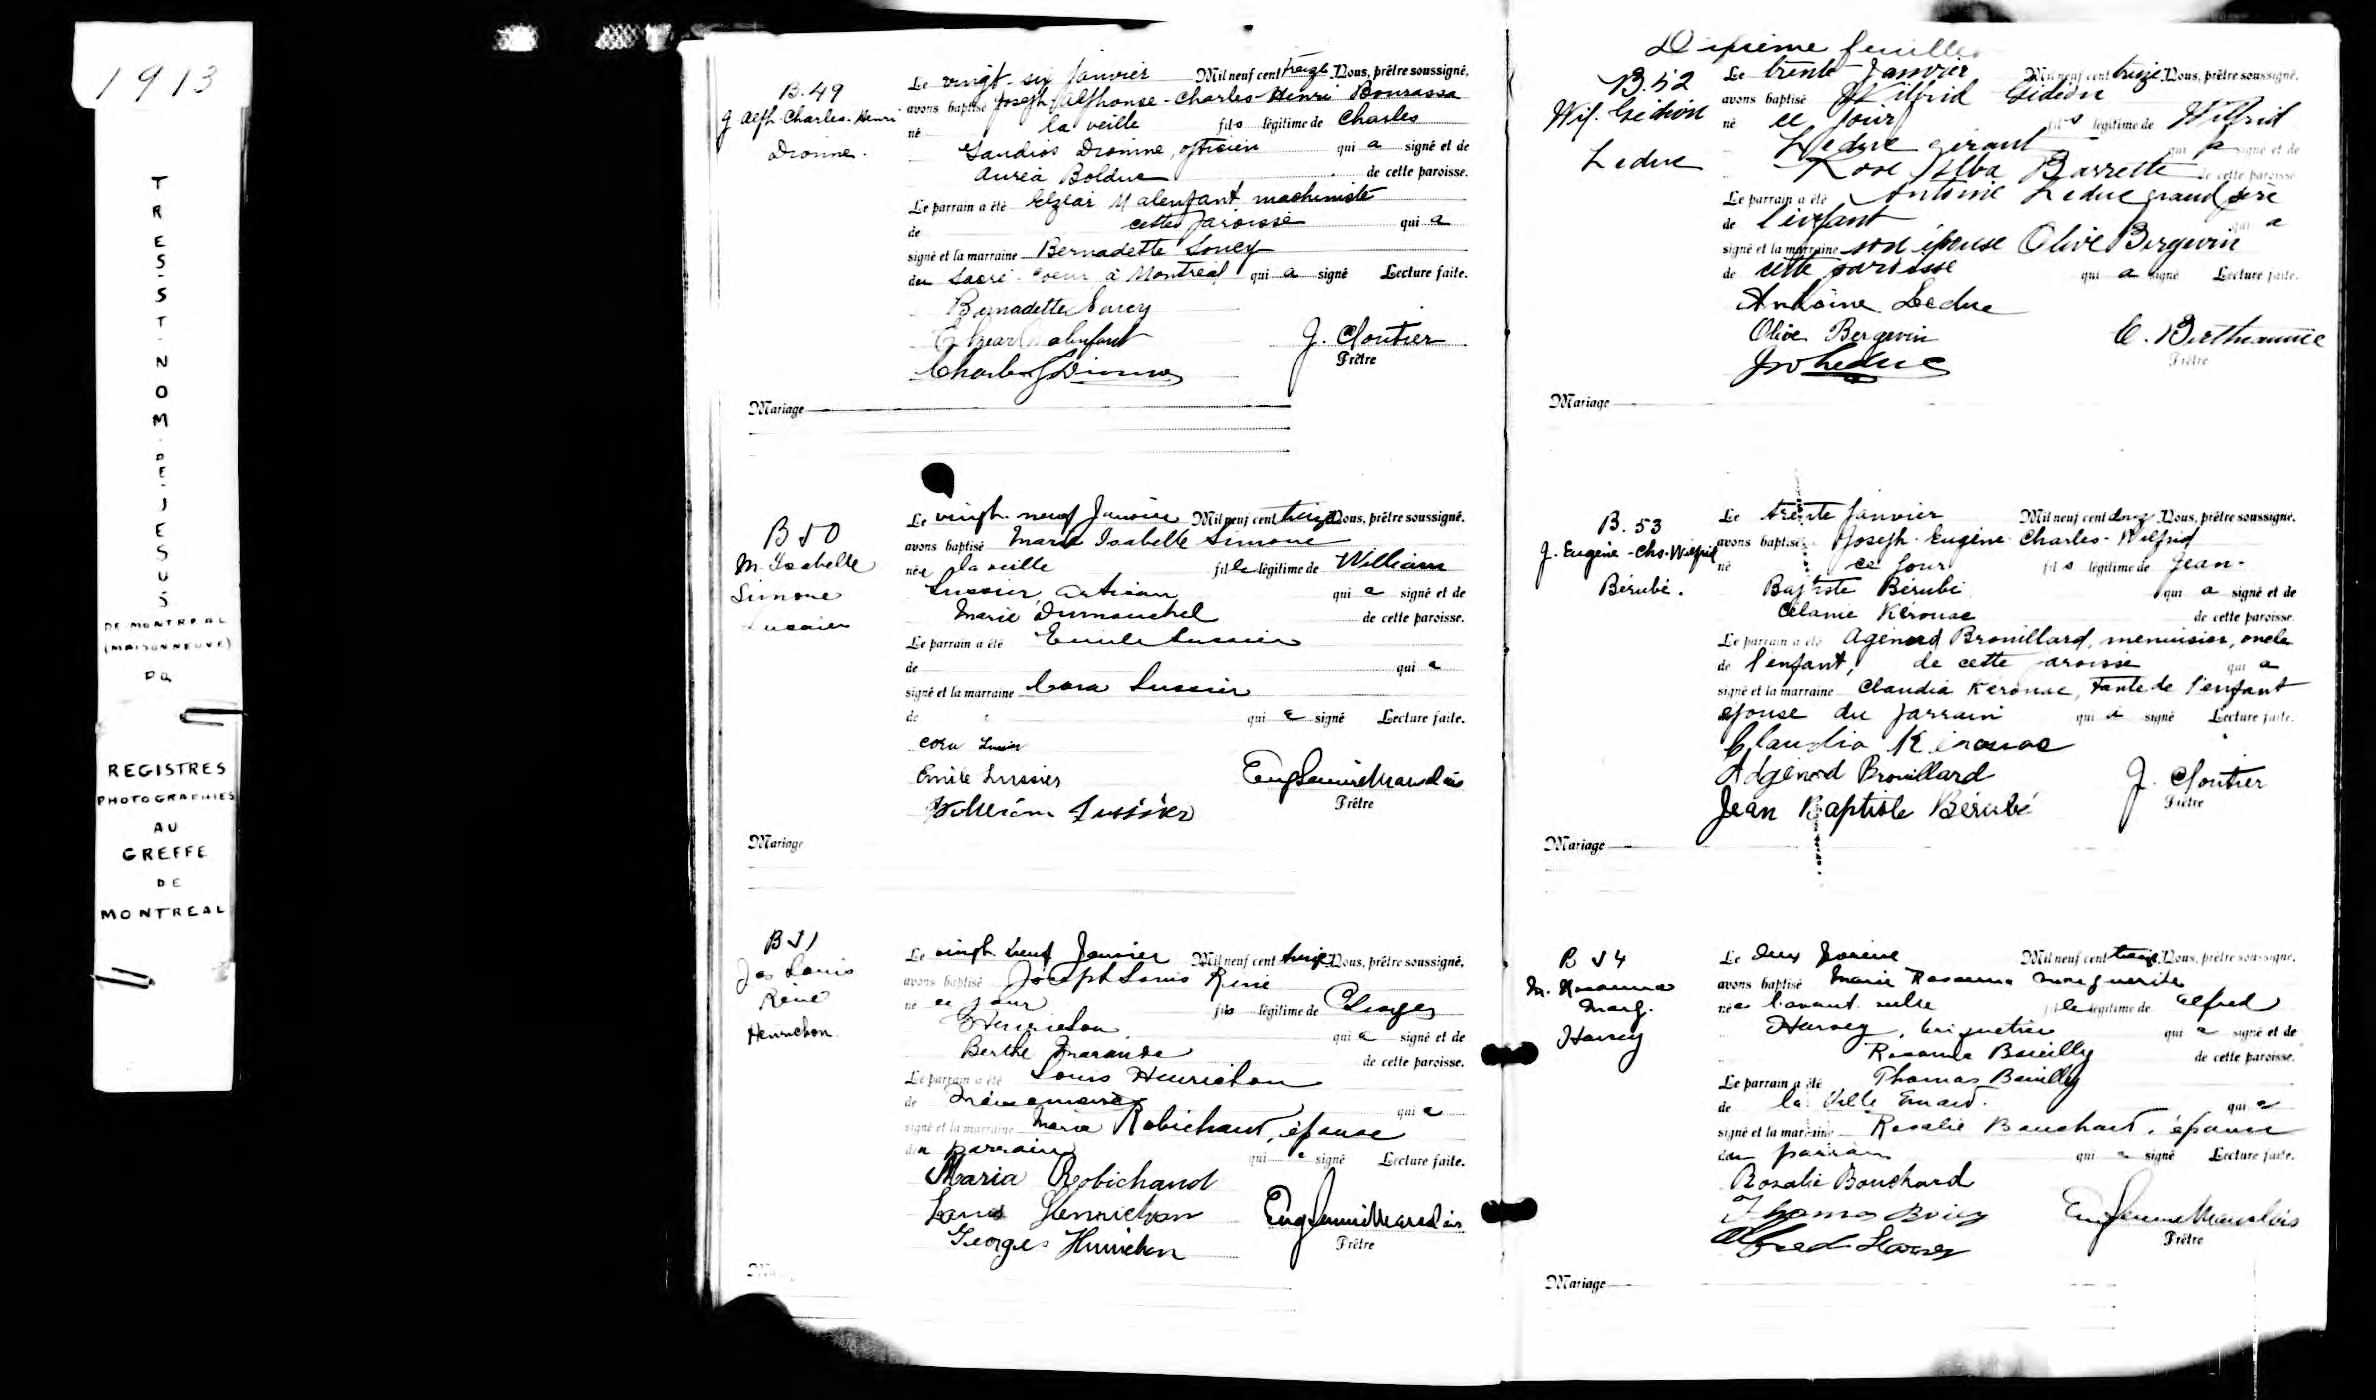 1913
TRES-ST-NOM-DE-JESUS
DE MONTREAL
(MAISONNEUVE)
PQ
REGISTRES
PHOTOGRAPHIES
AU
GREFFE
DE
MONTREAL
B.49
J Alph-Charles-Henri
Dionne.
Le vingt-six Janvier Mil neuf cent treize Nous, prêtre soussigné,
avons baptisé Joseph-Alphonse-Charles-Henri Bourassa
né la veille fils légitime de Charles
Gaudios Dionne, opticien qui a signé et de
Auréa Bolduc de cette paroisse.
Le parrain a été Elzéar Malenfant machiniste
de cette paroisse qui a
signé et la marraine Bernadette Soucy
du Sacré-Coeur à Montréal qui a signé Lecture faite.
Bernadette Soucy
Elzear Malenfant
J. Cloutier
Prêtre
Charles Dionne
Mariage
B 50
M. Isabelle
Simone
Lussier
Le vingt-neuf Janvier Mil neuf cent treize Nous, prêtre soussigné,
avons baptisé Marie Isabelle Simone
née la veille fille légitime de William
Lussier, artisan qui a signé et de
Marie Dumouchel de cette paroisse.
Le parrain a été Emile Lussier
de qui a
signé et la marraine Cora Lussier
de qui a signé Lecture faite.
Cora Lussier
Emile Lussier
Prêtre
William Lussier
Mariage
B 51
Jos Louis
Réné
Henrichon
Le vingt neuf Janvier Mil neuf cent treize Nous, prêtre soussigné,
avons baptisé Joseph Louis René
né ce jour fils légitime de Georges
Henrichon qui a signé et de
Berthe Maranda de cette paroisse.
Le parrain a été Louis Henrichon
de qui a
signé et la marraine Maria Robichaud, épouse
du parrain qui a signé Lecture faite.
Maria Robichaud
Louis Henrichon
Georges Henrichon
Prêtre
Dixième feuille
B.52
Wif. Gédéon
Leduc
Le trente Janvier Mil neuf cent treize Nous, prêtre soussigné,
avons baptisé Wilfrid Gédéon
né ce jour fils légitime de Wilfrid
Leduc gérant qui a signé et de
Rose Alba Barrette de cette paroisse
Le parrain a été Antoine Leduc grand père
de l'enfant qui a
signé et la marraine son épouse Olive Bergevin
de cette paroisse qui a signé Lecture faite.
Antoine Leduc
Olive Bergevin
Prêtre
Leduc
Mariage
B. 53
J. Eugène-Chs-Wilfrid
Bérubé.
Le trente Janvier Mil neuf cent Nous, prêtre soussigné,
avons baptisé Joseph-Eugène-Charles-Wilfrid
né ce jour fils légitime de Jean-
Baptiste Bérubé qui a signé et de
Célanie Kérouac de cette paroisse.
Le parrain a été Agénord Brouillard, menuisier, oncle
de l'enfant, de cette paroisse qui a
signé et la marraine Claudia Kérouac, tante de l'enfant
épouse du parrain qui a signé Lecture faite.
Claudia Kérouac
Adgénod Brouillard
J. Cloutier
Prêtre
Jean Baptiste Bérubé
Mariage
B 54
M. Rosanna
Marg.
Harvey
Le deux Mil neuf cent treize Nous, prêtre soussigné,
avons baptisé Marie Rosanna Marguerite
née l'avant-veille fille légitime de Alfred
Harvey, briquetier qui a signé et de
de cette paroisse.
Le parrain a été Thomas
de la Ville Emard. qui a
signé et la marraine Rosalie Bouchard, épouse
du parrain qui a signé Lecture faite.
Rosalie Bouchard
Thomas
Alfred Harvey
Prêtre
Mariage